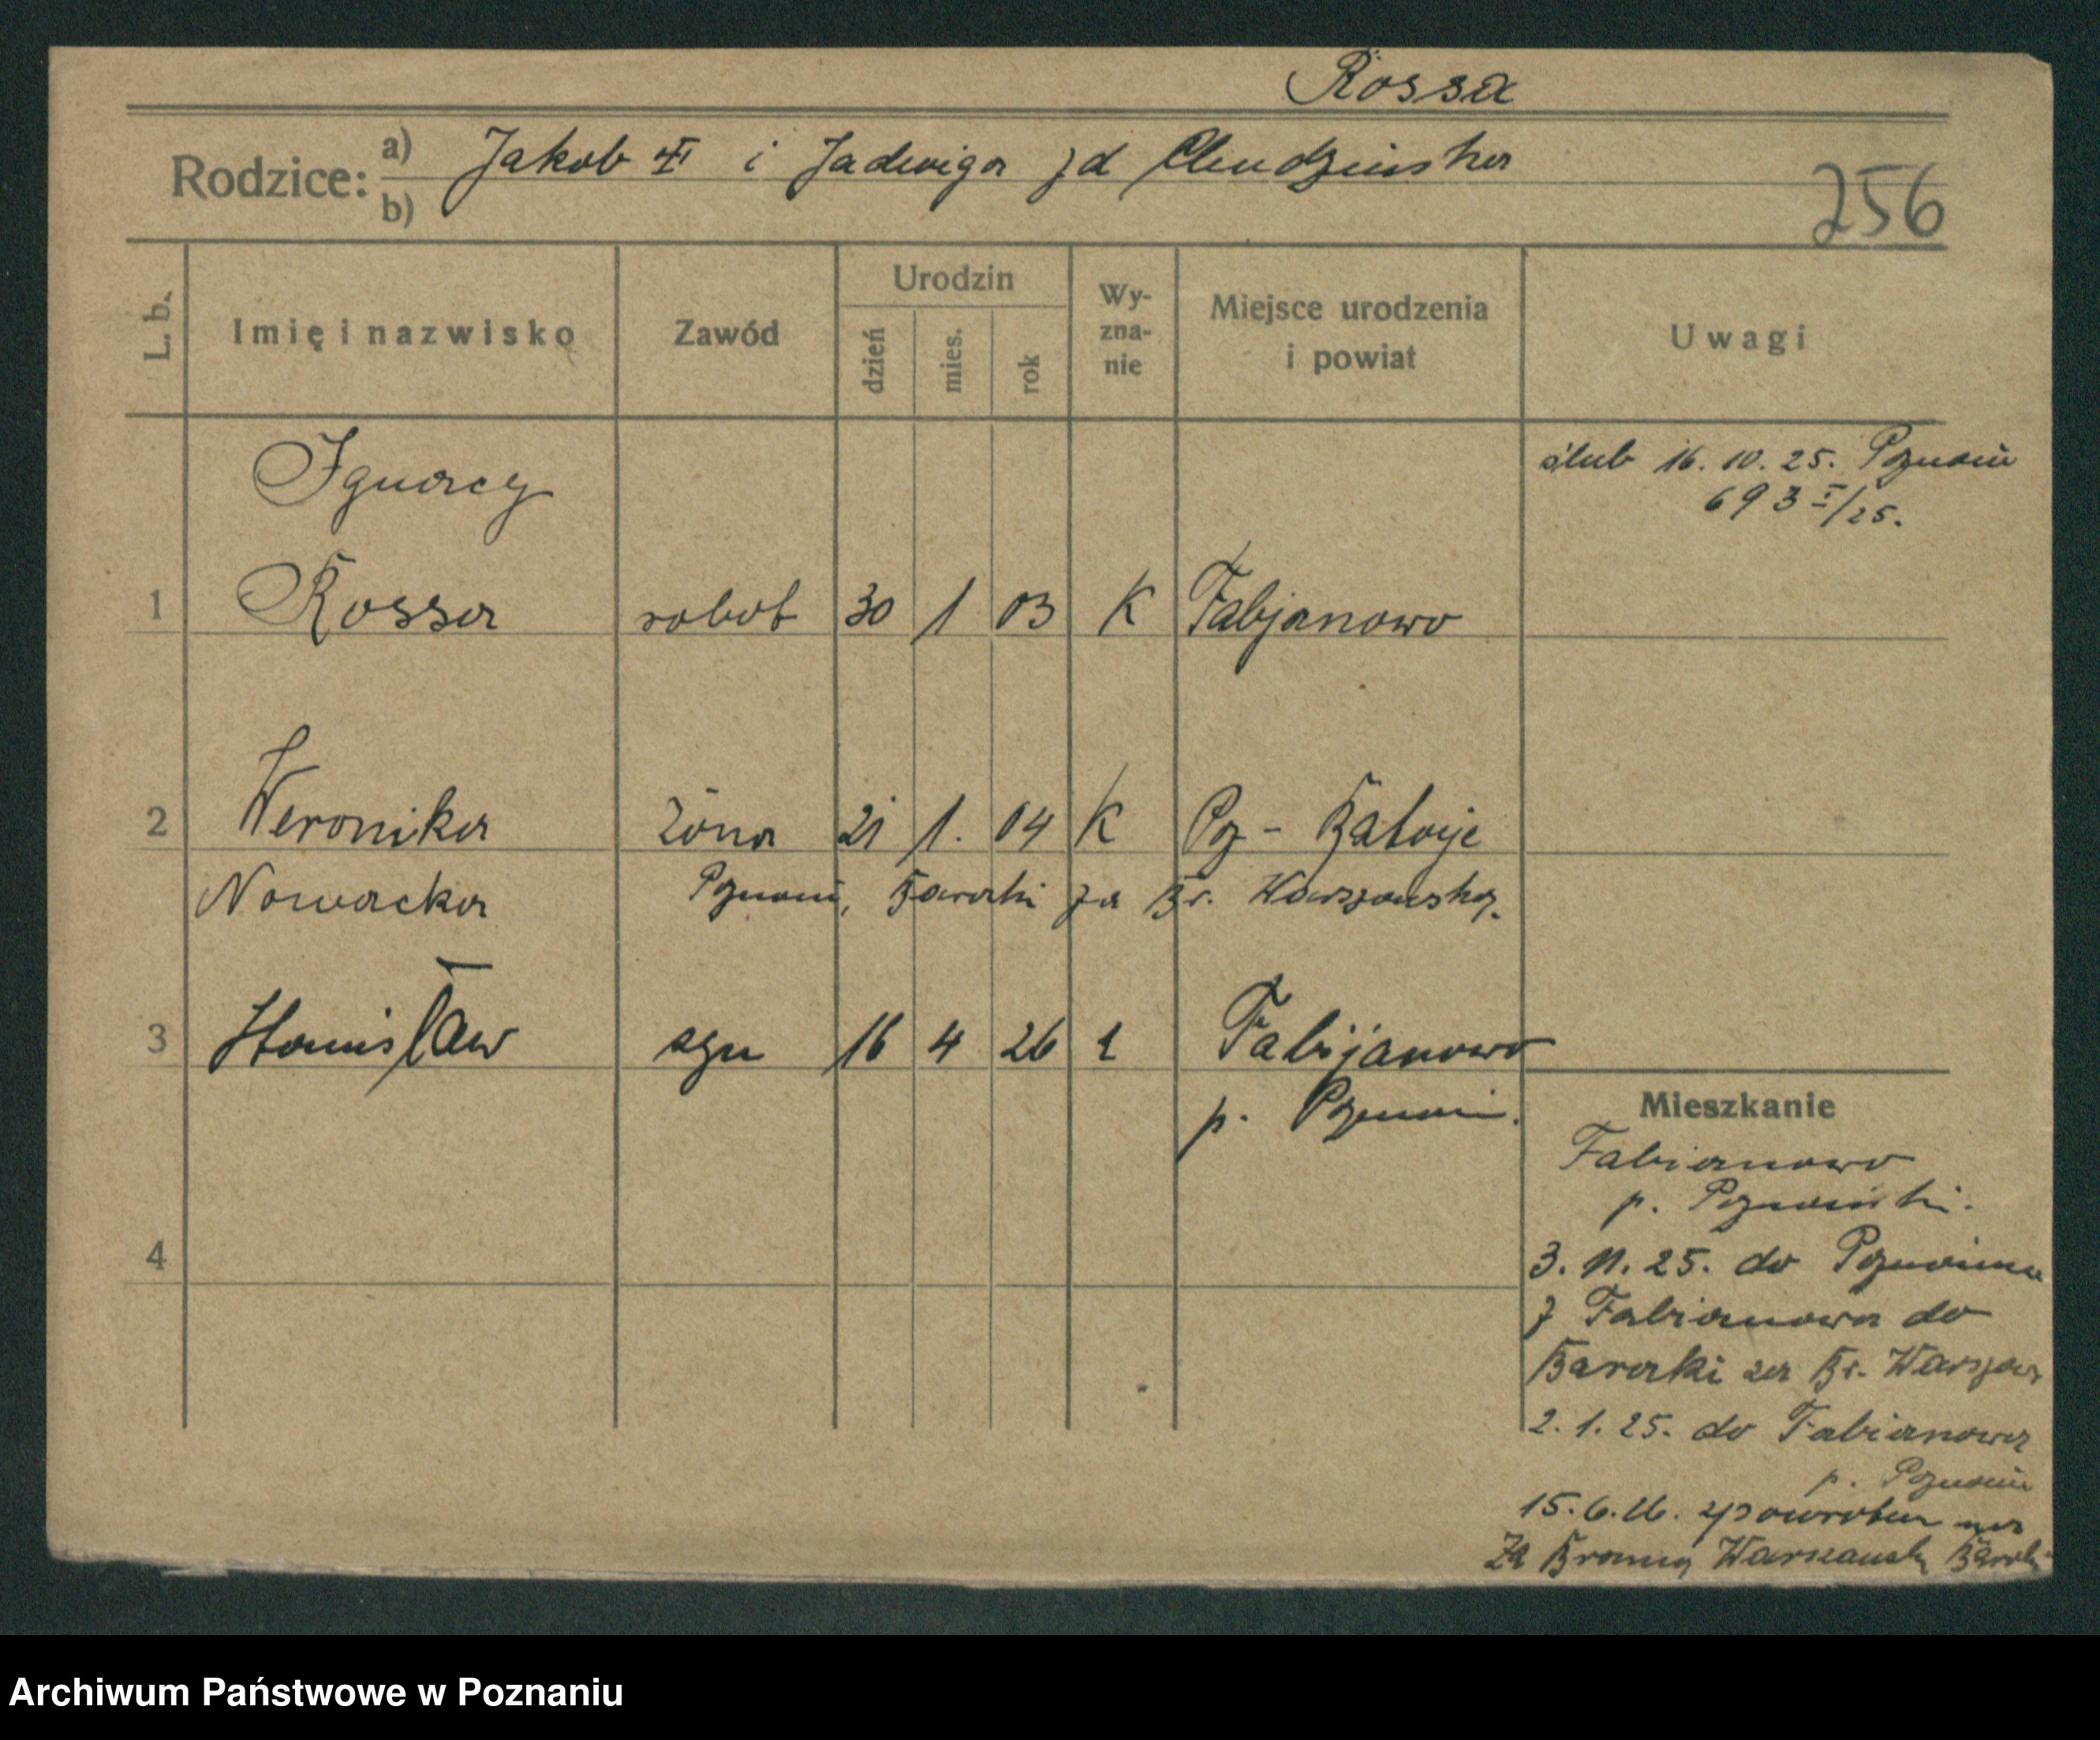 Rossa
Rodzice: a) Jakob i Jadwiga zd Chudzińska
b)
256
L. b.
Imię i nazwisko
Zawód
Urodzin
dzień
mies.
rok
Wy-
zna-
nie
Miejsce urodzenia
i powiat
Uwagi
Ignacy
ślub 16. 10. 25. Poznań
693 I/25.
1 Rossa robot 30 1 03 K Fabjanowo
2 Weronika żona 21 1. 04 K Poz - Rataje
Nowacka Poznań, Baraki za Br. Warszawską.
3 Stanisław syn 16 4 26 Fabijanowo
p. Poznań.
4
Mieszkanie
Fabianowo
p. Poznański.
3. 11. 25. do Poznania
z Fabianowa do
Baraki za Br. Warszaw
2. 1. 25. do Fabianowa
p. Poznań
15. 6. 26. zpowrotem na
Za Bramą Warszawsk Barak
Archiwum Państwowe w Poznaniu